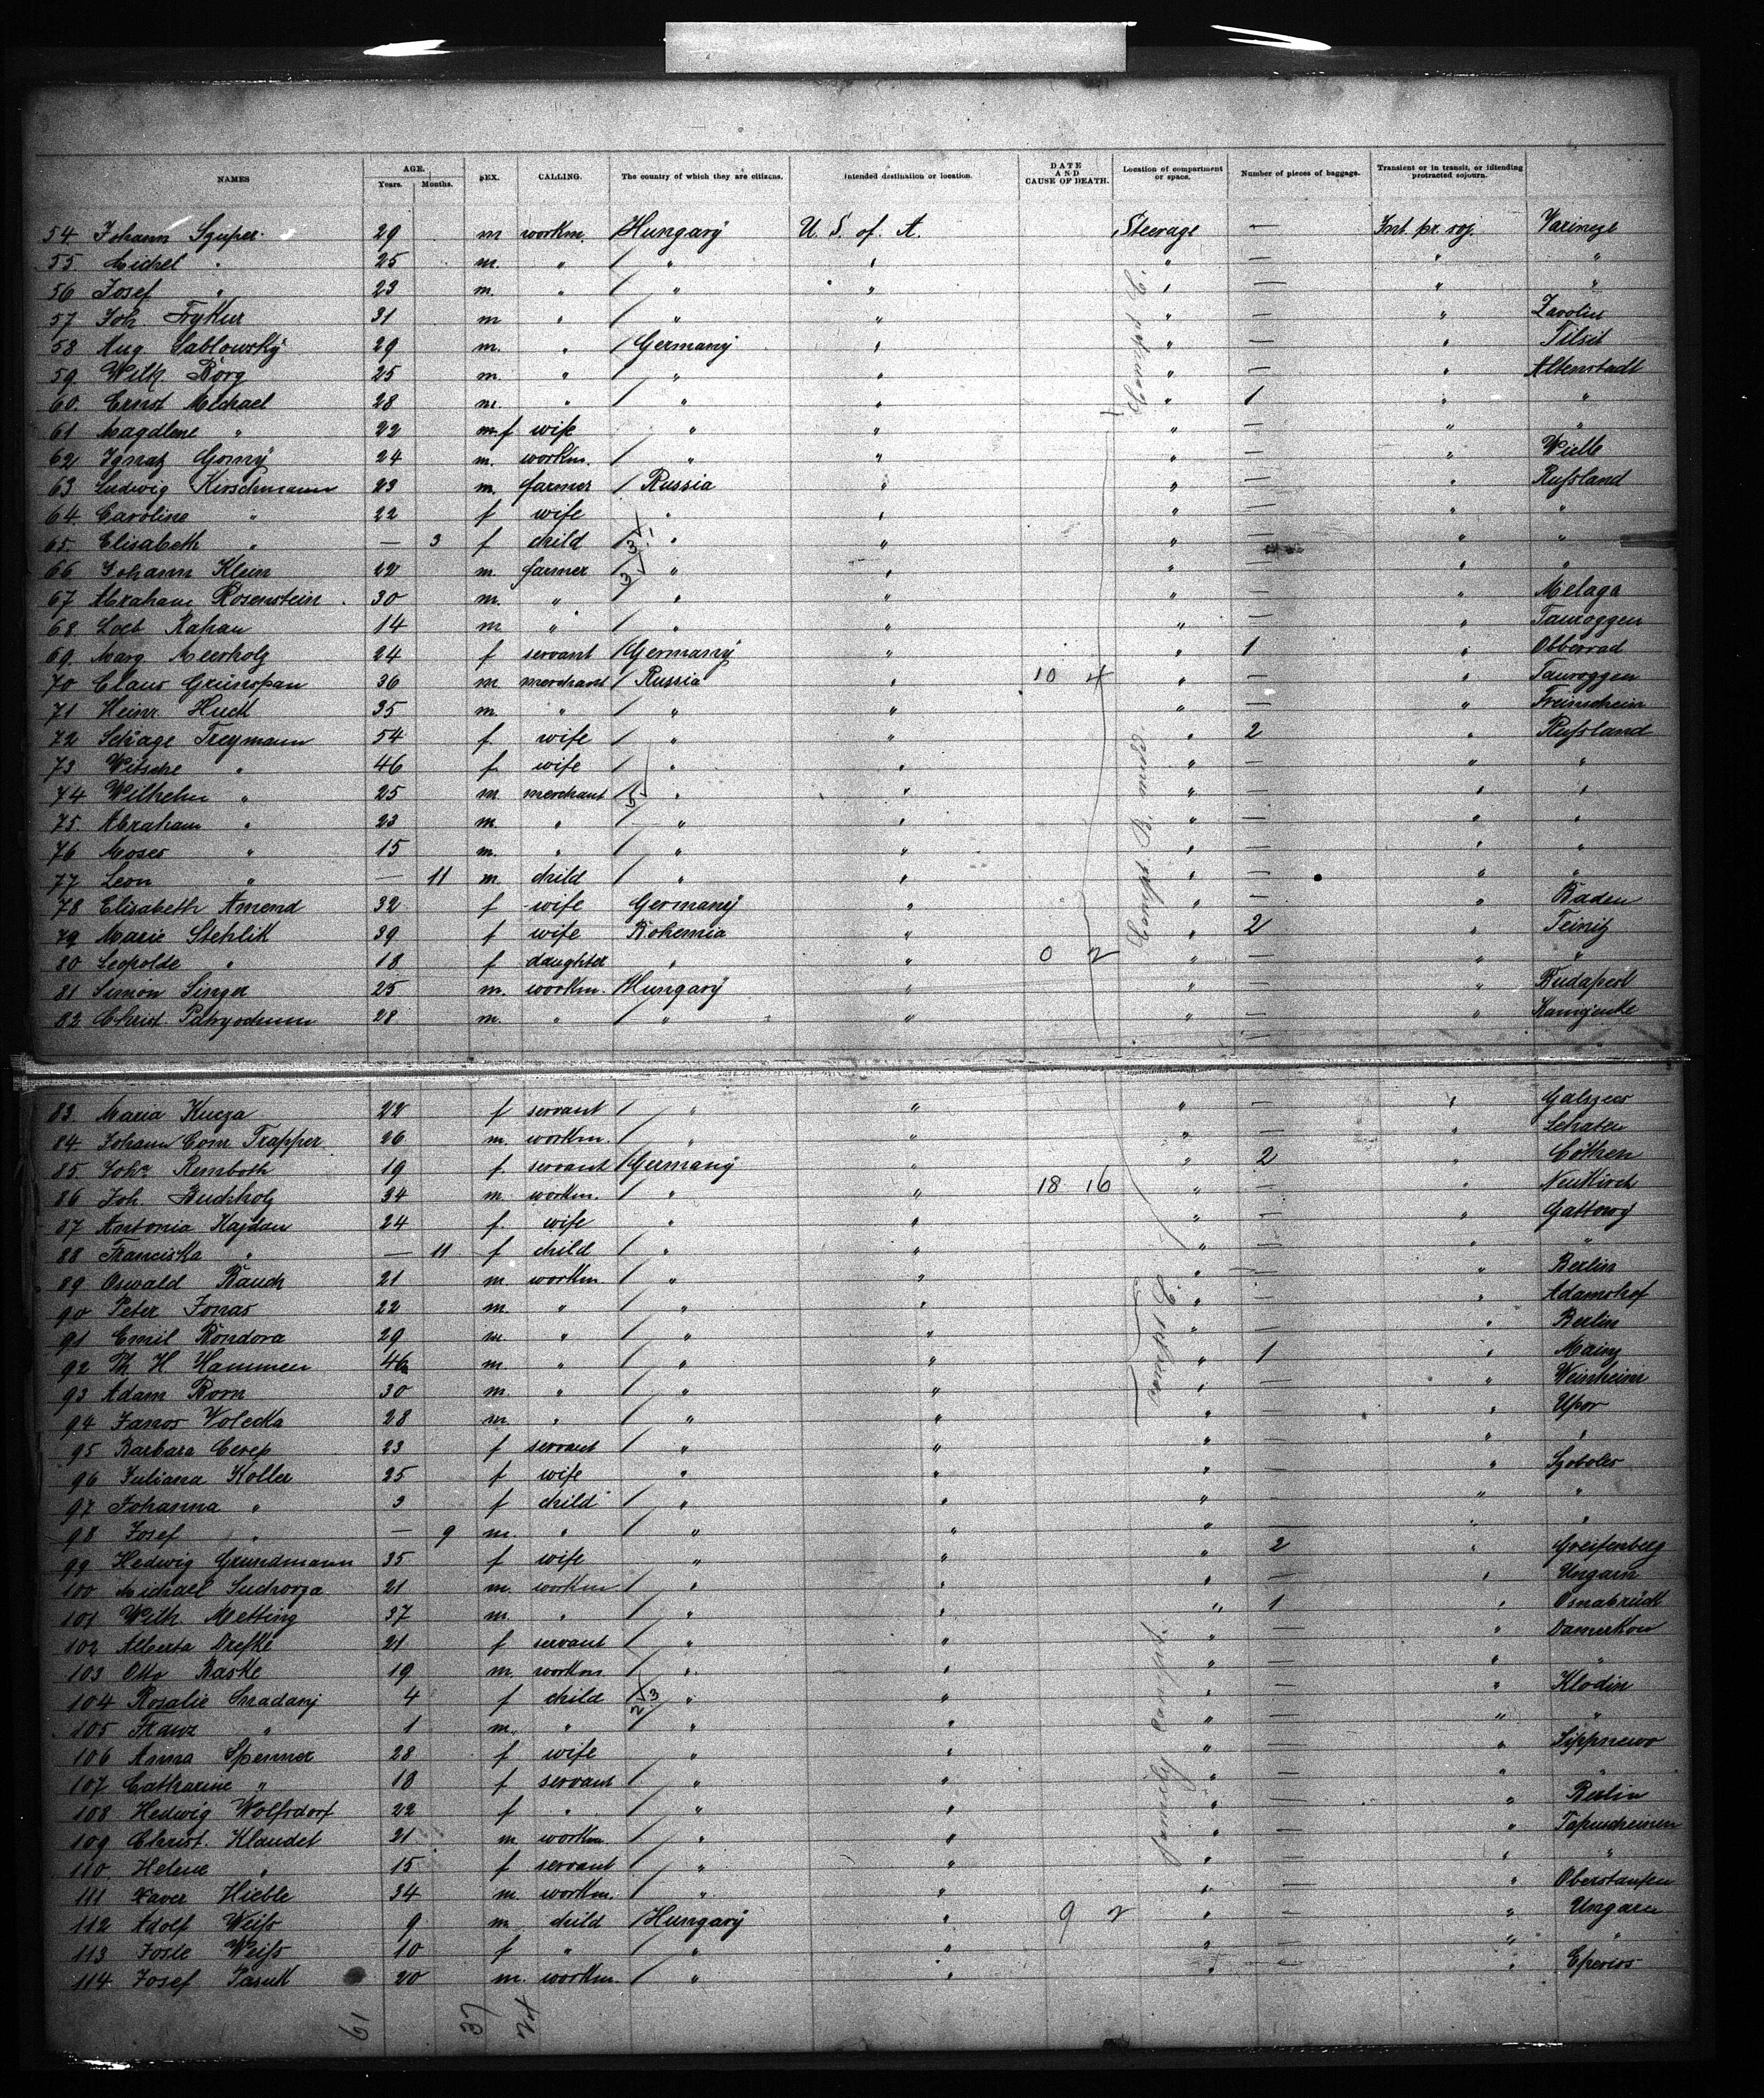 NAMES AGE. Years. Months. SEX. CALLING. The country of which they are citizens. Intended destination or location. DATE AND CAUSE OF DEATH. Location of compartment or space. Number of pieces of baggage. Transient or in transit, or intending protracted sojourn.
54. Johann 29 m workm. Hungary U. S. of. A. Steerage — Int. pr. soj.
55. Michel " 25 m. " " " " — " "
56 Josef " 23 m. " " " " — " "
57 Joh. 31 m " " " " — "
58 Aug. Sablowsky 29 m. " Germany " " — " Tilsit
59. Wilh. Borg 25 m. " " " " — " Altenstadt
60. Ernst Michael 28 m. " " " " 1 " "
61 Magdlene " 22 m f wife " " " — " "
62 Ignatz Gorny 24 m. workm. " " " — "
63 Ludwig Kirschmann 23 m. farmer Russia " " — " Rußland
64 Caroline " 22 f wife " " " — " "
65. Elisabeth " — 3 f child " " " — " "
66 Johann Klein 22 m. farmer " " " — " "
67 Abraham Rosenstein. 30 m. " " " " — " Melaga
68. Loeb Kahan 14 m " " " " — " Tauroggen
69. Marg. Meerholz 24 f servant Germany " " 1 " Obberrad
70 Claus Grünspan 36 m merchant Russia " 10 4 " — " Tauroggen
71 Heinr. Huck 35 m. " " " " — " Freinsheim
72 Schage Treymann 54 f. wife " " " 2 " Rußland
73 Witsche " 46 f. wife " " " — " "
74 Wilhelm " 25 m. merchant " " " — " "
75. Abraham " 23 m. " " " " — " "
76 Moses " 15 m. " " " " — " "
77 Leon " — 11 m. child " " " — " "
78 Elisabeth Amend 32 f wife Germany " " — " Baden
79 Marie Stehlik 39 f wife Bohemia " " 2 " Teinitz
80 Leopolde " 18 f daughter " " 0 2 " — " "
81 Simon Singer 25 m. workm. Hungary " " — " Budapest
82 Christ. 28 m. " " " " — "
Compt C.
Compt. B. midd
83. Maria Kucza 22 f servant " " " — "
84. Johann Conr. Trapper 26 m. workm. " " " — "
85. Joh. Remboth 19 f. servant Germany " " 2 " Cöthen
86 Joh. Buchholz 34 m. workm. " " 18 16 " — " Neukirch
87 Antonia Kajdan 24 f. wife " " " — "
88 Franciska " — 11 f child " " " — " "
89 Oswald Bauch 21 m. workm. " " " — " Berlin
90 Peter Jonas 22 m. " " " " — " Adamshof
91 Emil Bondora 29 m. " " " " — " Berlin
92 Th. H. Hammen 46 m. " " " " 1 " Mainz
93 Adam Born 30 m. " " " " — " Weinheim
94 Janos Volecka 28 m. " " " " — " Upor
95 Barbara Cerep 23 f servant " " " — " "
96 Juliana Koller 25 f wife " " " — "
97 Johanna " 3 f child " " " — " "
98 Josef " — 9 m. " " " " — " "
99 Hedwig Grundmann 35 f wife " " " 2 " Greifenberg
100 Michael 21 m. workm " " " — " Ungarn
101 Wilh. Metting 37 m. " " " " 1 " Osnabrück
102 Alberta Drefke 21 f servant " " " — " Damerkow
103 Otto Baske 19 m. workm " " " — " "
104 Rosalie 4 f child " " " — " Klodin
105 Franz " 1 m. " " " " — " "
106 Anna Spenner 28 f wife " " " — "
107 Catharine " 18 f servant " " " — " "
108 Hedwig Wolfsdorf 22 f " " " " — " Berlin
109 Christ. Klaudet 21 m. workm. " " " — "
110 Helene " 15 f servant " " " — " "
111 Xaver Hieble 34 m. workm. " " " — " Oberstaufen
112 Adolf Weiß 9 m. child Hungary " 9 2 " — " Ungarn
113 Weiß 10 f " " " " — " "
114 Josef 20 m. workm. " " " — " Eperies
Compt C.
Family Compt.
61 37 24